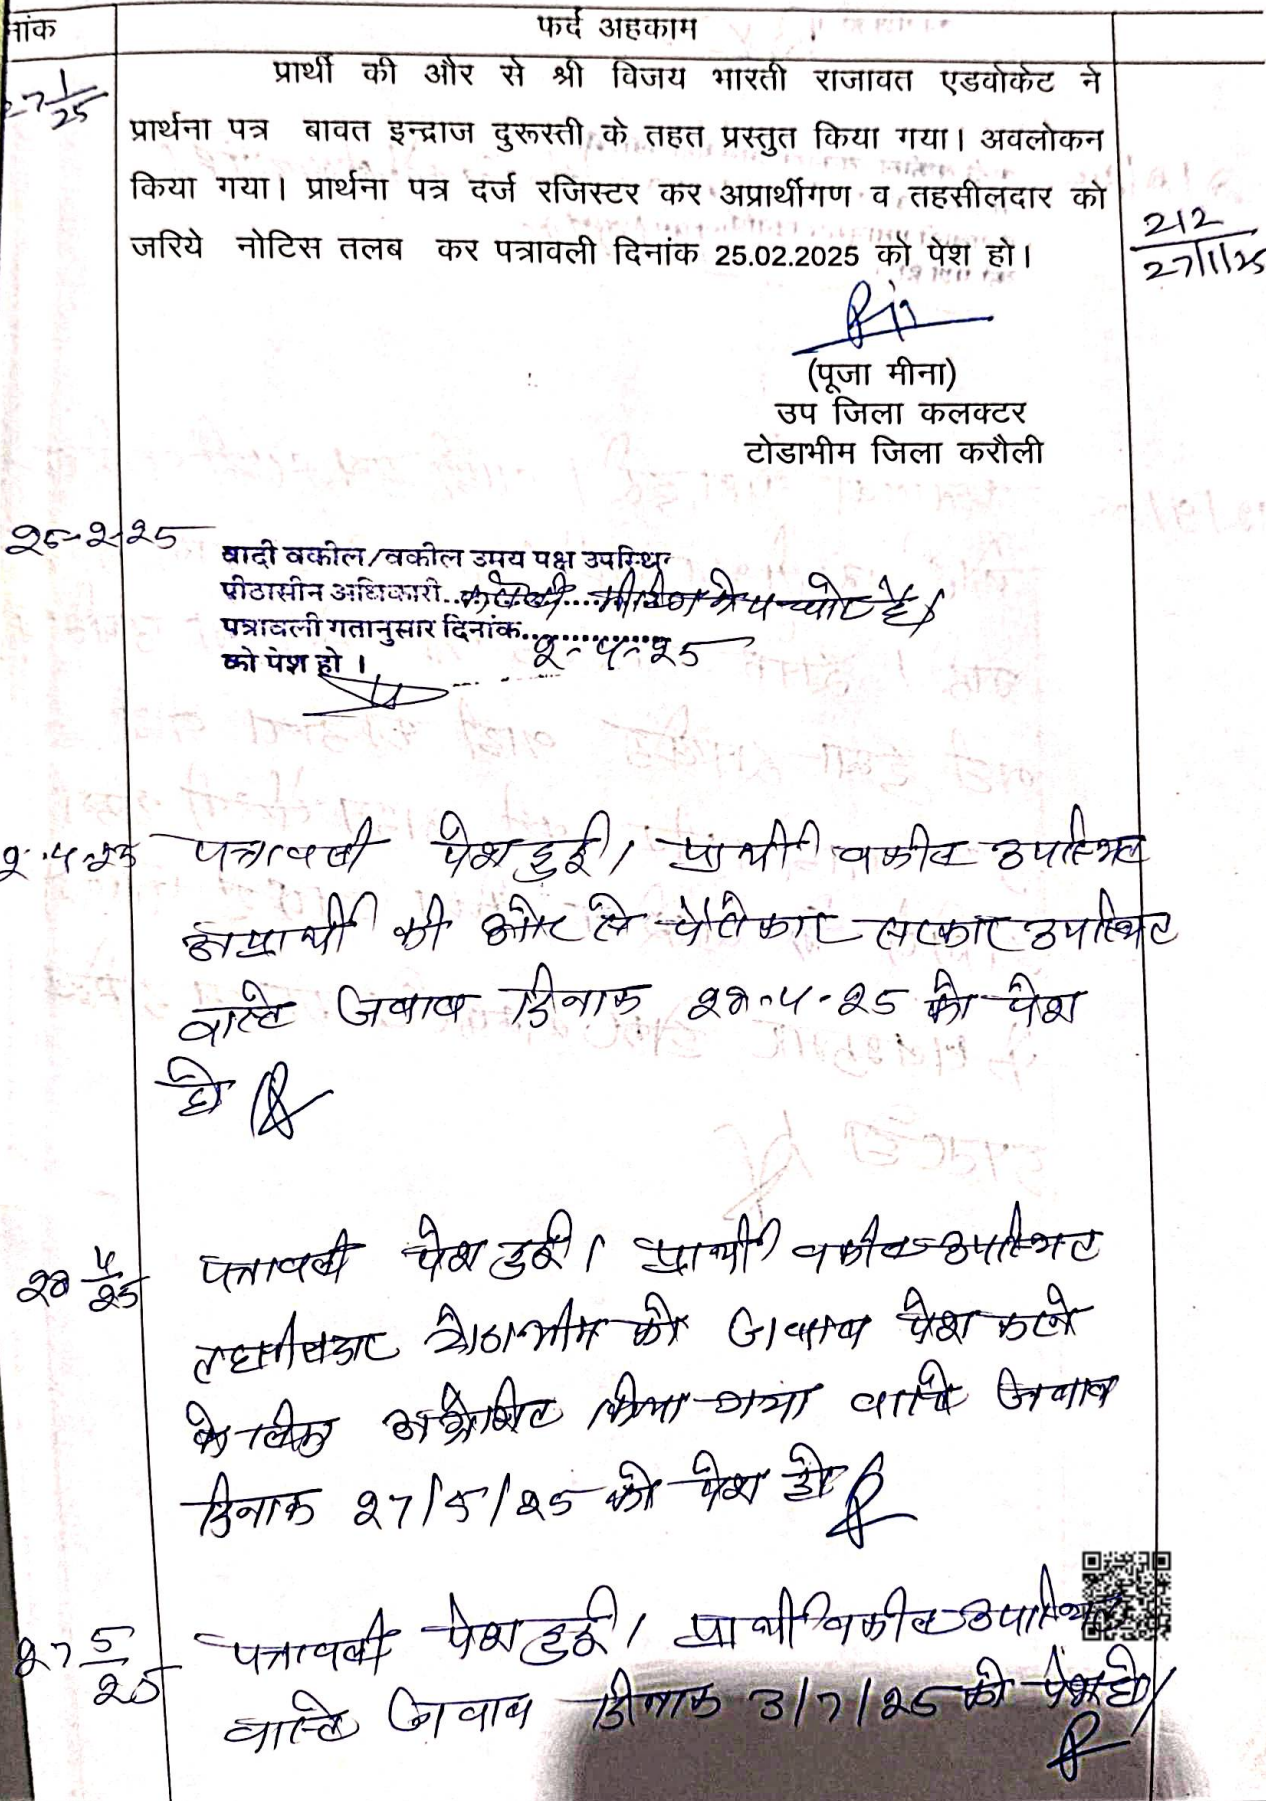 नांक फर्द अहकाम
27 1/25 प्रार्थी की और से श्री विजय भारती राजावत एडवोकेट ने
प्रार्थना पत्र बावत इन्द्राज दुरूस्ती के तहत प्रस्तुत किया गया। अवलोकन
किया गया। प्रार्थना पत्र दर्ज रजिस्टर कर अप्रार्थीगण व तहसीलदार को
जरिये नोटिस तलब कर पत्रावली दिनांक 25.02.2025 को पेश हो।
212
27/1/25
(पूजा मीना)
उप जिला कलक्टर
टोडाभीम जिला करौली
25-2-25
वादी वकील/वकील उमय पक्ष उपस्थि
पीठासीन अधिकारी..
पत्रावली गतानुसार दिनांक..............
को पेश हो । 2-4-25
2.4.25 पत्रावली पेश हुई। प्रार्थी वकील उपस्थित
अप्रार्थी की ओर से पैरोकार सरकार उपस्थित
वास्ते जवाब दिनांक 22.4.25 को पेश
हो
22 4/25 पत्रावली पेश हुई। प्रार्थी वकील उपस्थित
तहसीलदार टोडाभीम को जवाब पेश करने
के लिए किया गया वास्ते जवाब
दिनांक 27/5/25 को पेश हो
27 5/25 पत्रावली पेश हुई। प्रार्थी वकील उपस्थित
वास्ते जवाब दिनांक 3/7/25 को पेश हो।